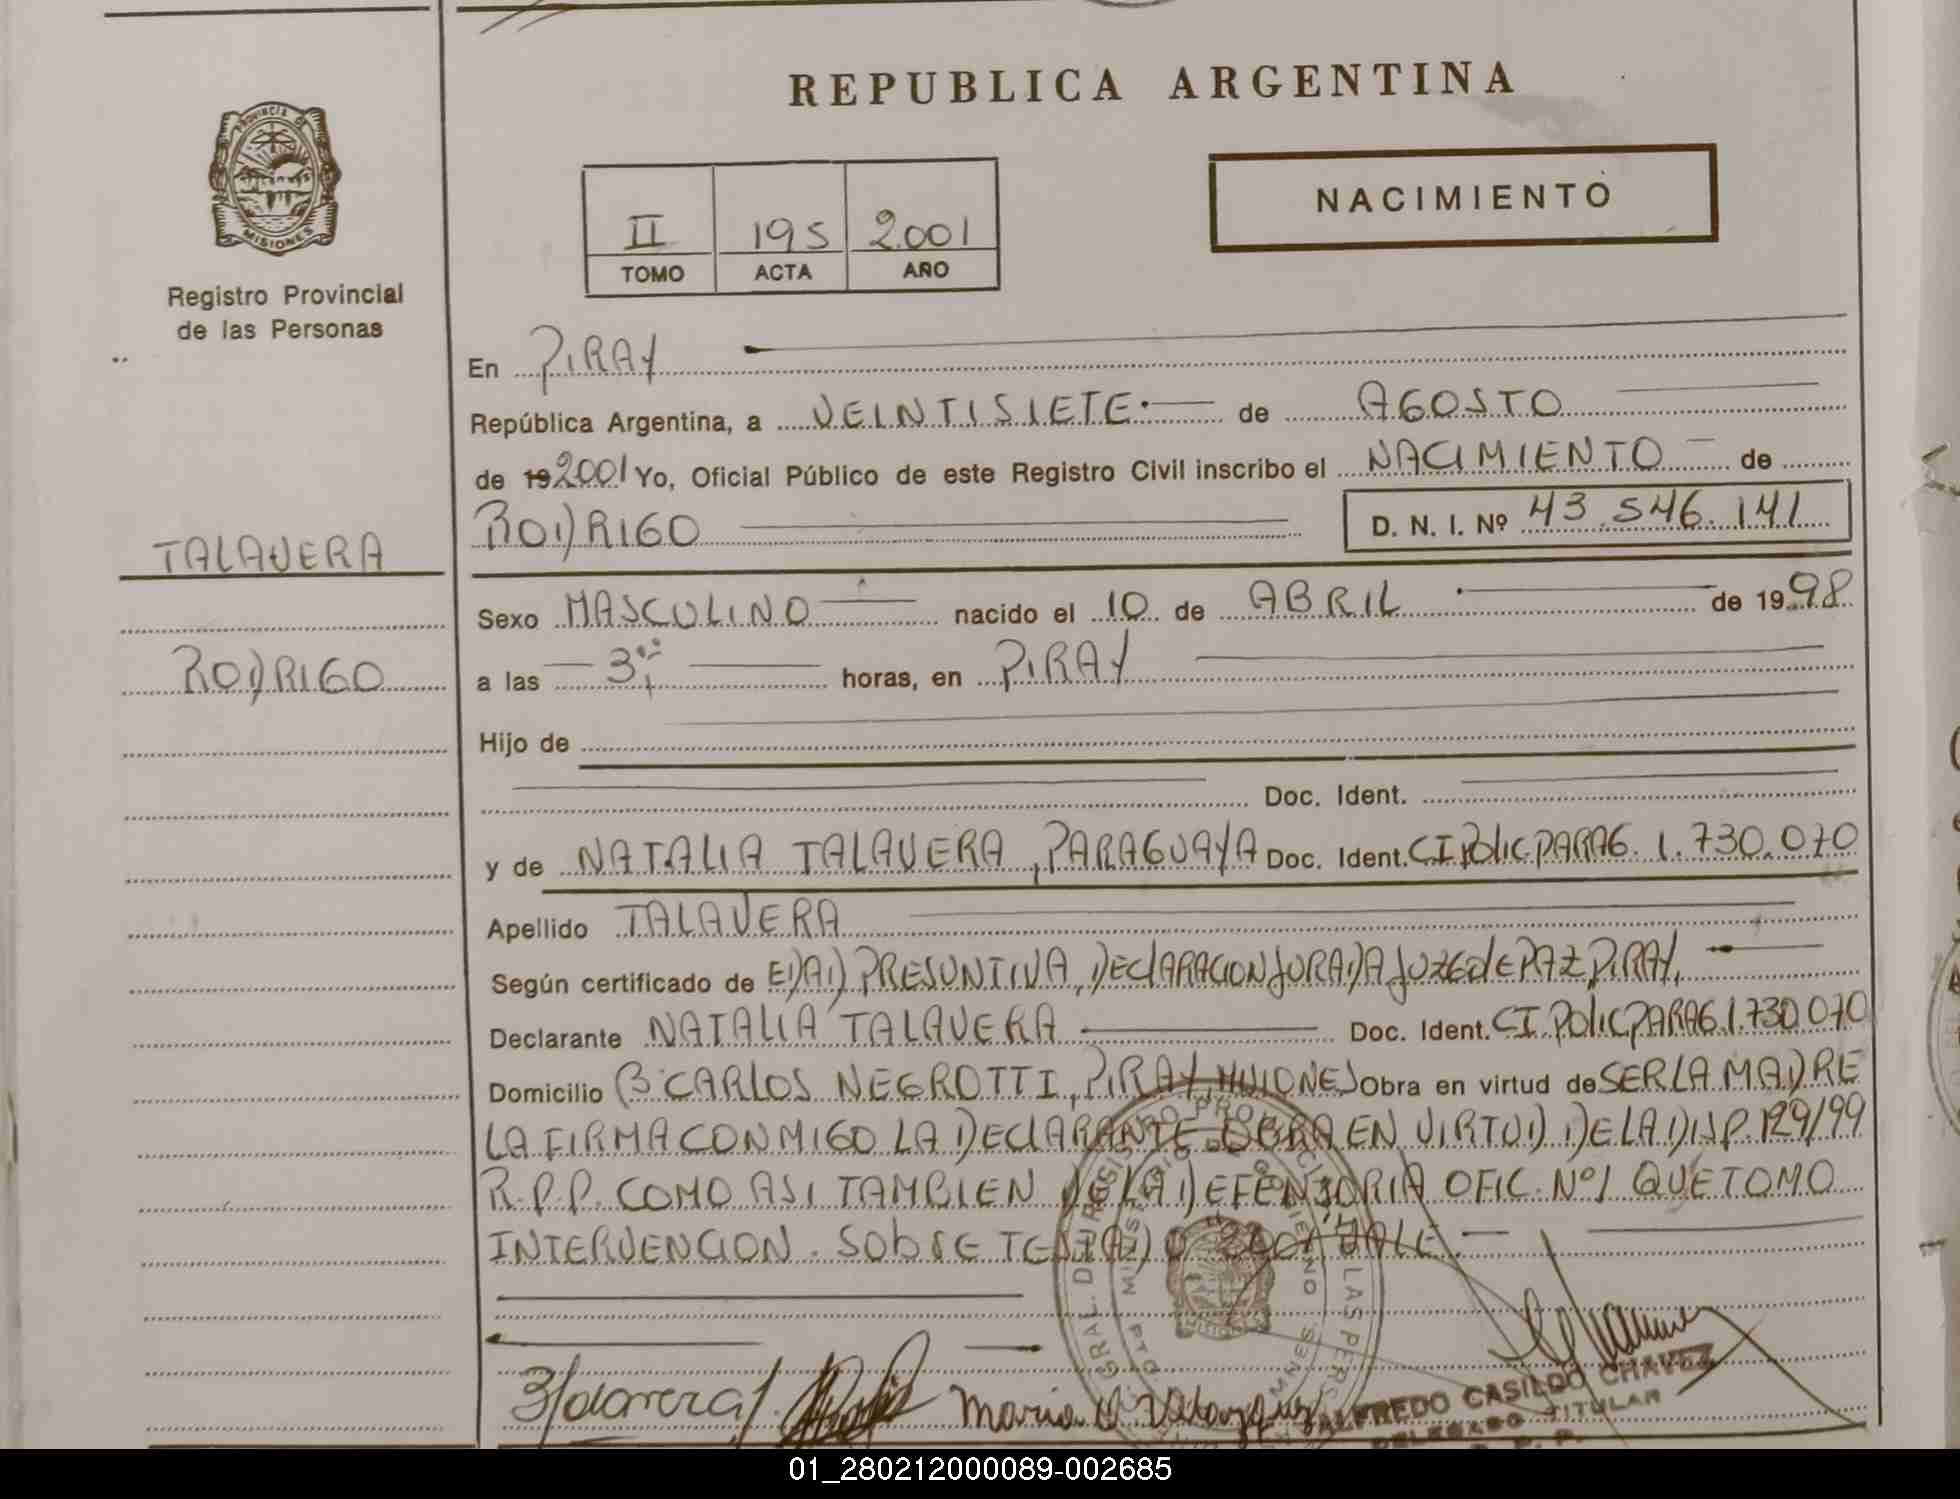 REPUBLICA ARGENTINA
PROVINCIA DE
MISIONES
Registro Provincial
de las Personas
II 195 2.001
TOMO ACTA AÑO
NACIMIENTO
En PIRAY
República Argentina, a VEINTISIETE.- de AGOSTO
de 192001 Yo, Oficial Público de este Registro Civil inscribo el NACIMIENTO de
RODRIGO D. N. I. Nº 43.546.141
TALAVERA
RODRIGO
Sexo MASCULINO nacido el 10 de ABRIL de 1998
a las 3 horas, en PIRAY
Hijo de
Doc. Ident.
y de NATALIA TALAVERA, PARAGUAYA Doc. Ident. CI POLIC PARAG. 1.730.070
Apellido TALAVERA
Según certificado de EDAD PRESUNTIVA, DECLARACION JURADA JUZG de PAZ PIRAY.
Declarante NATALIA TALAVERA Doc. Ident. CI. POLIC PARAG 1.730.070
Domicilio Bº CARLOS NEGROTTI, PIRAY, MISIONES Obra en virtud de SER LA MADRE
LA FIRMA CONMIGO LA DECLARANTE OBRA EN VIRTUD DE LA DISP. 129/99
R.P.P. COMO ASI TAMBIEN DE LA DEFENSORIA OFIC. Nº 1 QUE TOMO
INTERVENCION. SOBRE VALE.
ALFREDO CASILDO CHAVEZ
DELEGADO TITULAR
01_280212000089-002685